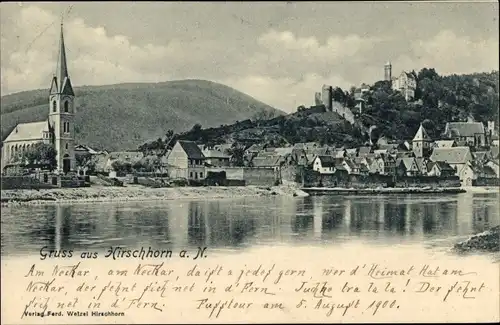 Gruss aus Hirschhorn a. N.
Am Neckar, am Neckar, a jeder gern, wer d'Heimat hat am
Neckar, der sehnt sich net in d'Fern. Juche tra la la! Der sehnt
sich net in d'Fern. Fusstour am 5. August 1900.
Verlag Ferd. Wetzel Hirschhorn